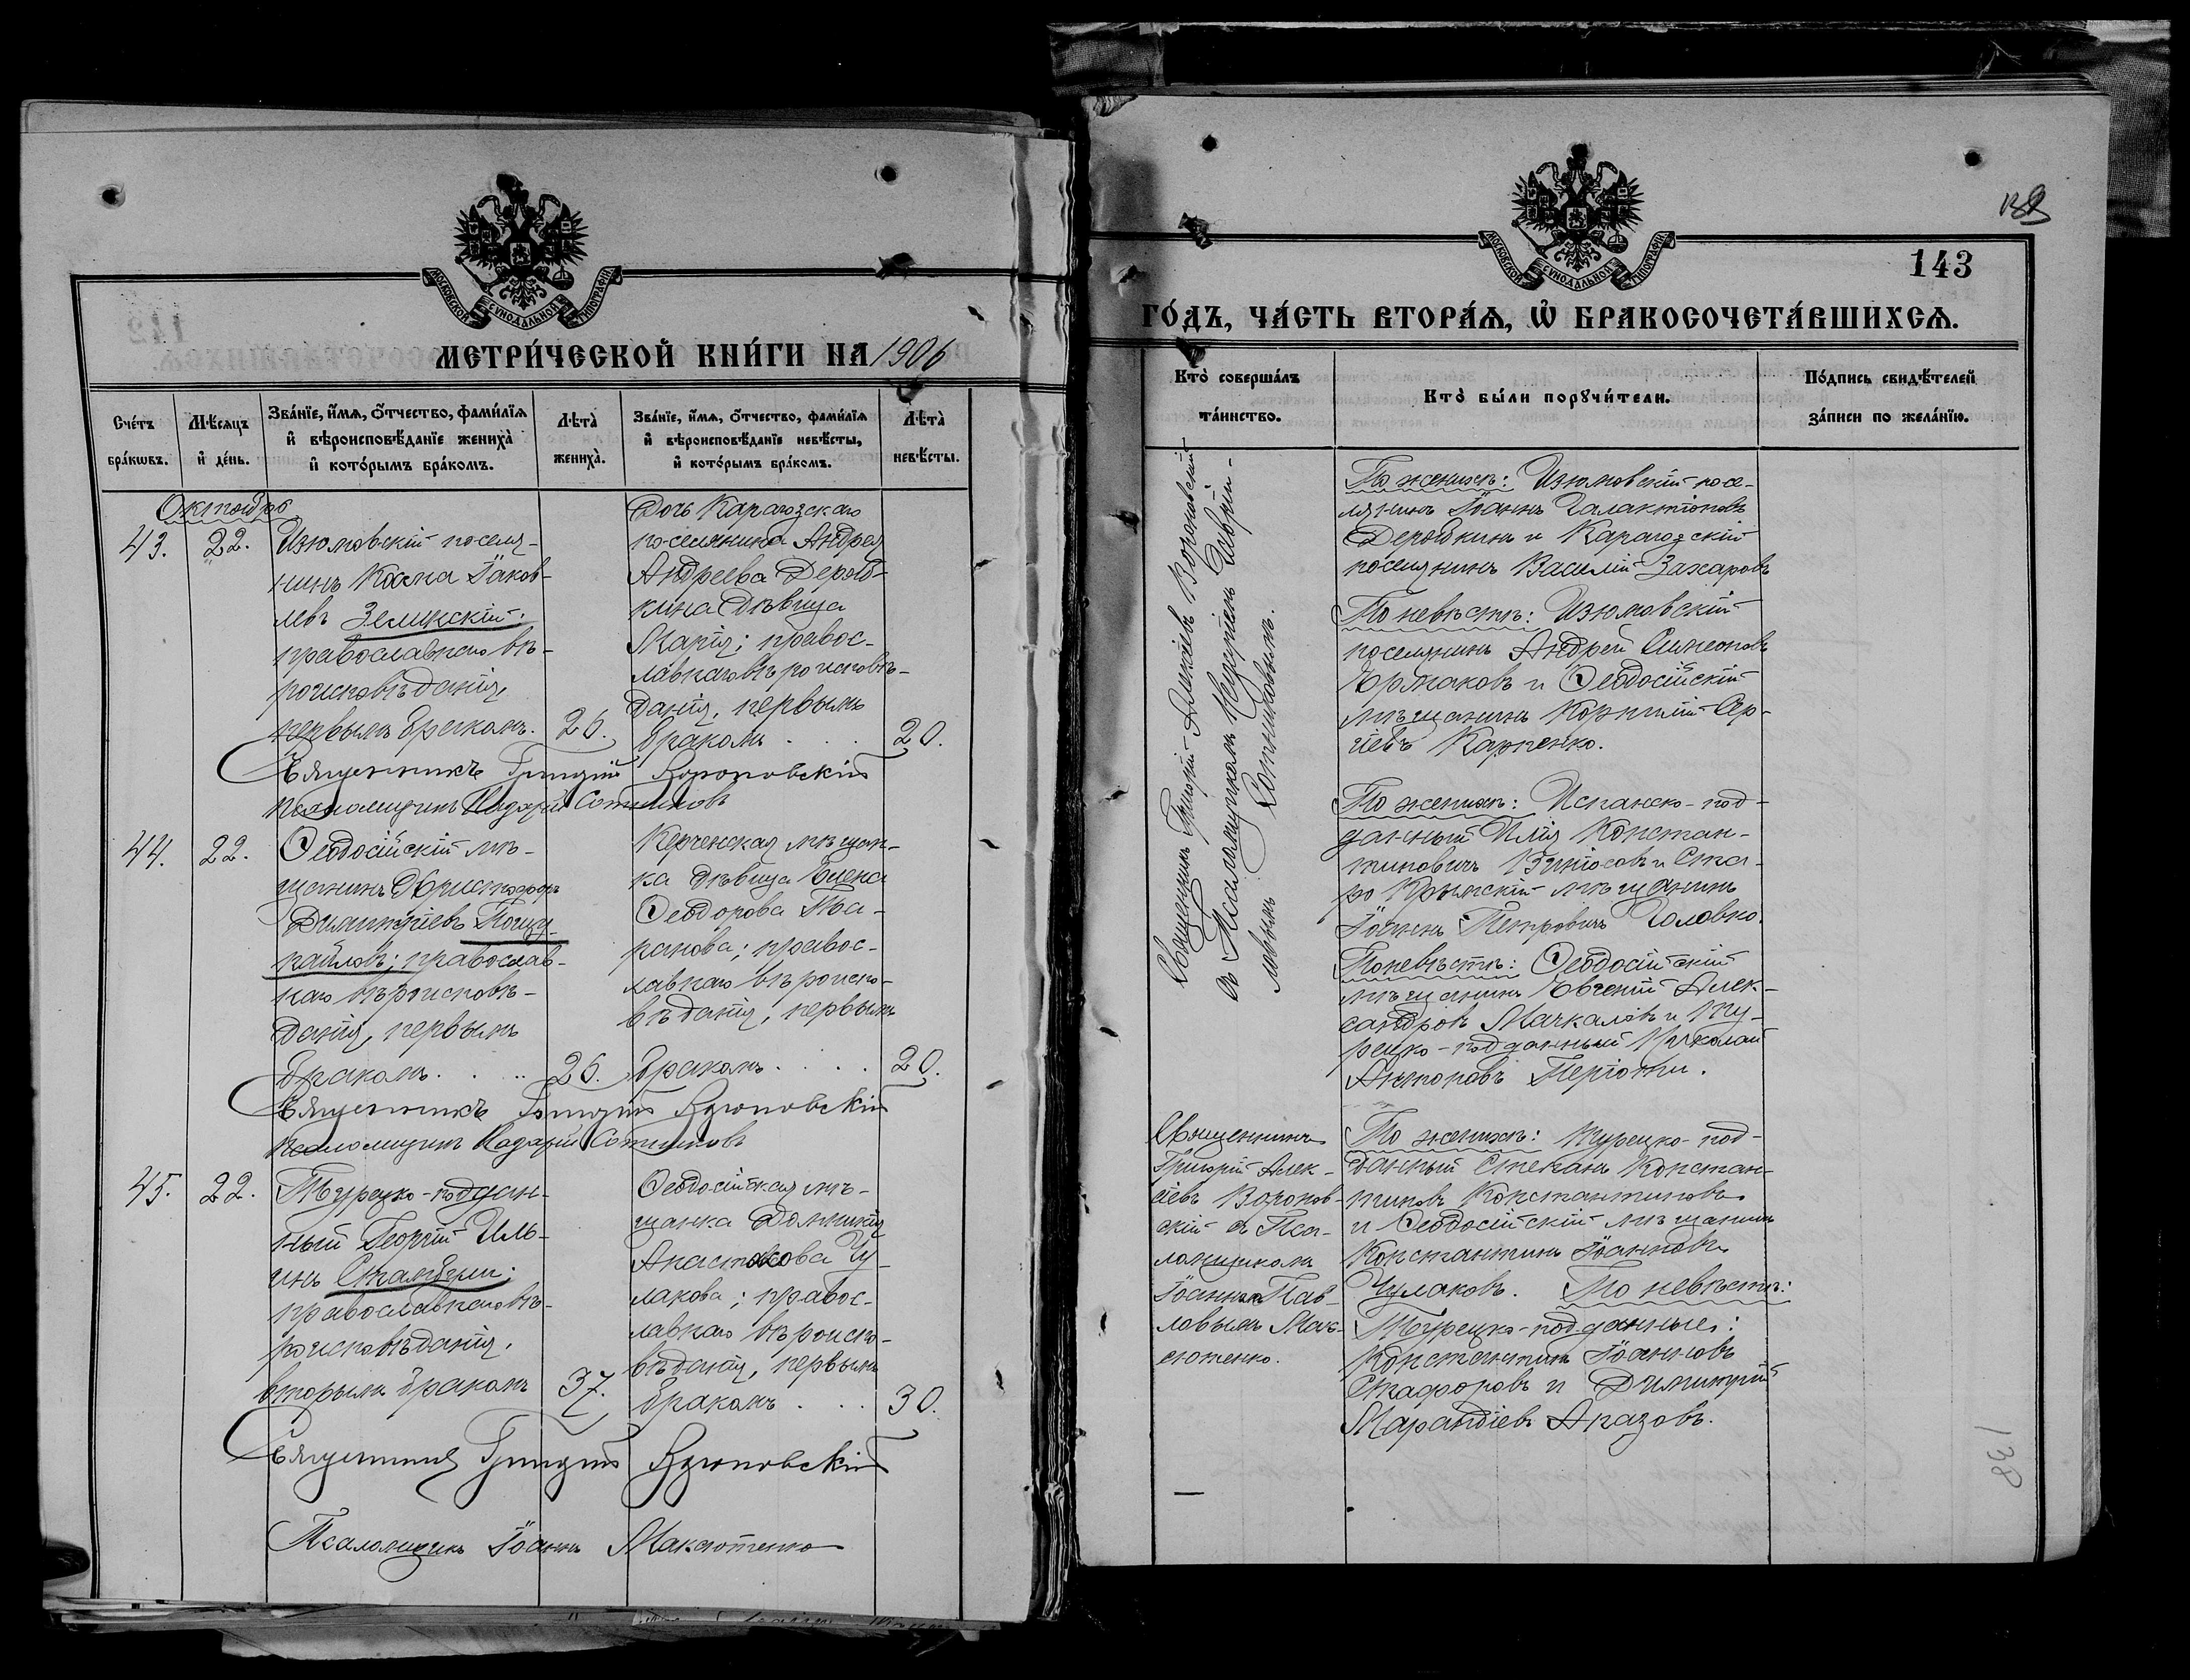 МОСКОВСКОЙ СѴНОДАЛЬНОЙ ТИПОГРАФІИ
МЕТРИ́ЧЕСКОЙ КНИ́ГИ НА 1906
Сче́тъ бра́кѡвъ.
Мѣ́сяцъ и҆ де́нь.
Зва́нїе, и҆́мѧ, ѻ҆́тчество, фами́лїѧ и҆ вѣроисповѣ́данїе жениха̀ и҆ кото́рымъ бра́комъ.
Лѣта̀ жениха̀.
Зва́нїе, и҆́мѧ, ѻ҆́тчество, фами́лїѧ и҆ вѣроисповѣ́данїе невѣ́сты, и҆ кото́рымъ бра́комъ.
Лѣта̀ невѣ́сты.
Октябрь
43. 22.
Изюмовскій поселя-
нинъ Косма Іаков-
левъ Земинскій;
православнаго вѣ-
роисповѣданія,
первымъ бракомъ. 26.
Дочь Карагозскаго
поселянина Андрея
Андреева Дерюб-
кина дѣвица
Марія; правос-
лавнаго вѣроисповѣ-
данія, первымъ
бракомъ . . . 20.
Священникъ Григорій Вороновскій
Псаломщикъ Сотниковъ
44. 22.
Ѳеодосійскій мѣ-
щанинъ Христофоръ
Димитріевъ
православ-
наго вѣроисповѣ-
данія, первымъ
бракомъ . . . 26.
Керченская мѣщан-
ка дѣвица Елена
Ѳеодорова
правос-
лавнаго вѣроиспо-
вѣданія, первымъ
бракомъ . . . . 20.
Священникъ Григорій Вороновскій
Псаломщикъ Сотниковъ
45. 22.
Турецко-поддан-
ный Георгій Иль-
инъ Стамбули;
православнаго вѣ-
роисповѣданія,
вторымъ бракомъ 37.
Ѳеодосійская мѣ-
щанка Домникія
Анастасова Чу-
лакова; правос-
лавнаго вѣроиспо-
вѣданія, первымъ
бракомъ . . . 30.
Священникъ Григорій Вороновскій
Псаломщикъ Іоаннъ Максютенко
МОСКОВСКОЙ СѴНОДАЛЬНОЙ ТИПОГРАФІИ
143
ГО́ДЪ, ЧА́СТЬ ВТОРА́Ѧ, Ѡ҆ БРАКОСОЧЕТА́ВШИХСѦ.
Кто̀ соверша́лъ та́инство.
Кто̀ бы́ли порꙋчи́тели.
По́дпись свидѣ́телей за́писи по жела́нїю.
Священникъ Григорій Алексіевъ Вороновскій
съ Псаломщикомъ Гаврііи-
ловымъ Сотниковымъ.
По женихѣ: Изюмовскій посе-
лянинъ Іоаннъ Галактіоновъ
Дерюбкинъ и Карагозскій
поселянинъ Василій Захаровъ
По невѣстѣ: Изюмовскій
поселянинъ Андрей Симеоновъ
Ермаковъ и Ѳеодосійскій
мѣщанинъ Корнилій Сер-
гіевъ Карпенко.
По женихѣ: Испанско-под-
данный Илія Констан-
тиновичъ и Ста-
ро Крымскій мѣщанинъ
Іоаннъ Петровичъ Головко.
По невѣстѣ: Ѳеодосійскій
мѣщанинъ Евгеній Алек-
сандровъ Мачкаловъ и Ту-
рецко-подданный Николай
Антоновъ Періоти.
Священникъ
Григорій Алек-
сіевъ Воронов-
скій съ Пса-
ломщикомъ
Іоанномъ Пав-
ловымъ Мак-
сютенко.
По женихѣ: Турецко-под-
данный Стефанъ Констан-
тиновъ Константиновъ
и Ѳеодосійскій мѣщанинъ
Константинъ Іоанновъ
Чулаковъ. По невѣстѣ:
Турецко-подданные:
Константинъ Іоанновъ
Стафоровъ и Димитрій
Марандіевъ Аразовъ.
138